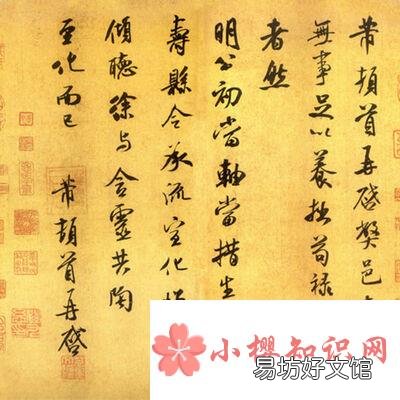 芾頓首再啓弊邑
無事足以養拙苟祿
者然
明公初當軸當措生
壽縣令承流宣化
傾聽徐与含靈共陶
至化而已
芾頓首再啓
小樱知识网
易坊好文馆